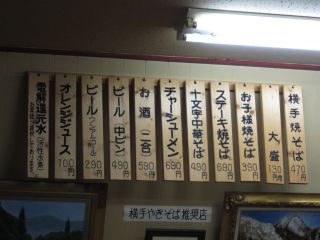 横手焼そば 470円
大盛 130円増
お子様焼そば 390円
ステーキ焼そば 690円
十文字中華そば 490円
チャーシューメン 690円
お酒(二合) 590円
ビール(中ビン) 490円
ビール(ノンアルコール) 290円
オレンジジュース 100円
電解還元水(活性水素)
横手やきそば推奨店